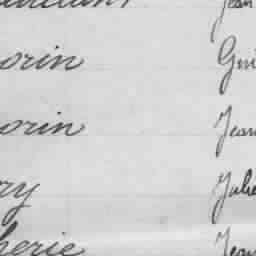 orin Gui
orin Jean
ry Julie
herie Jean